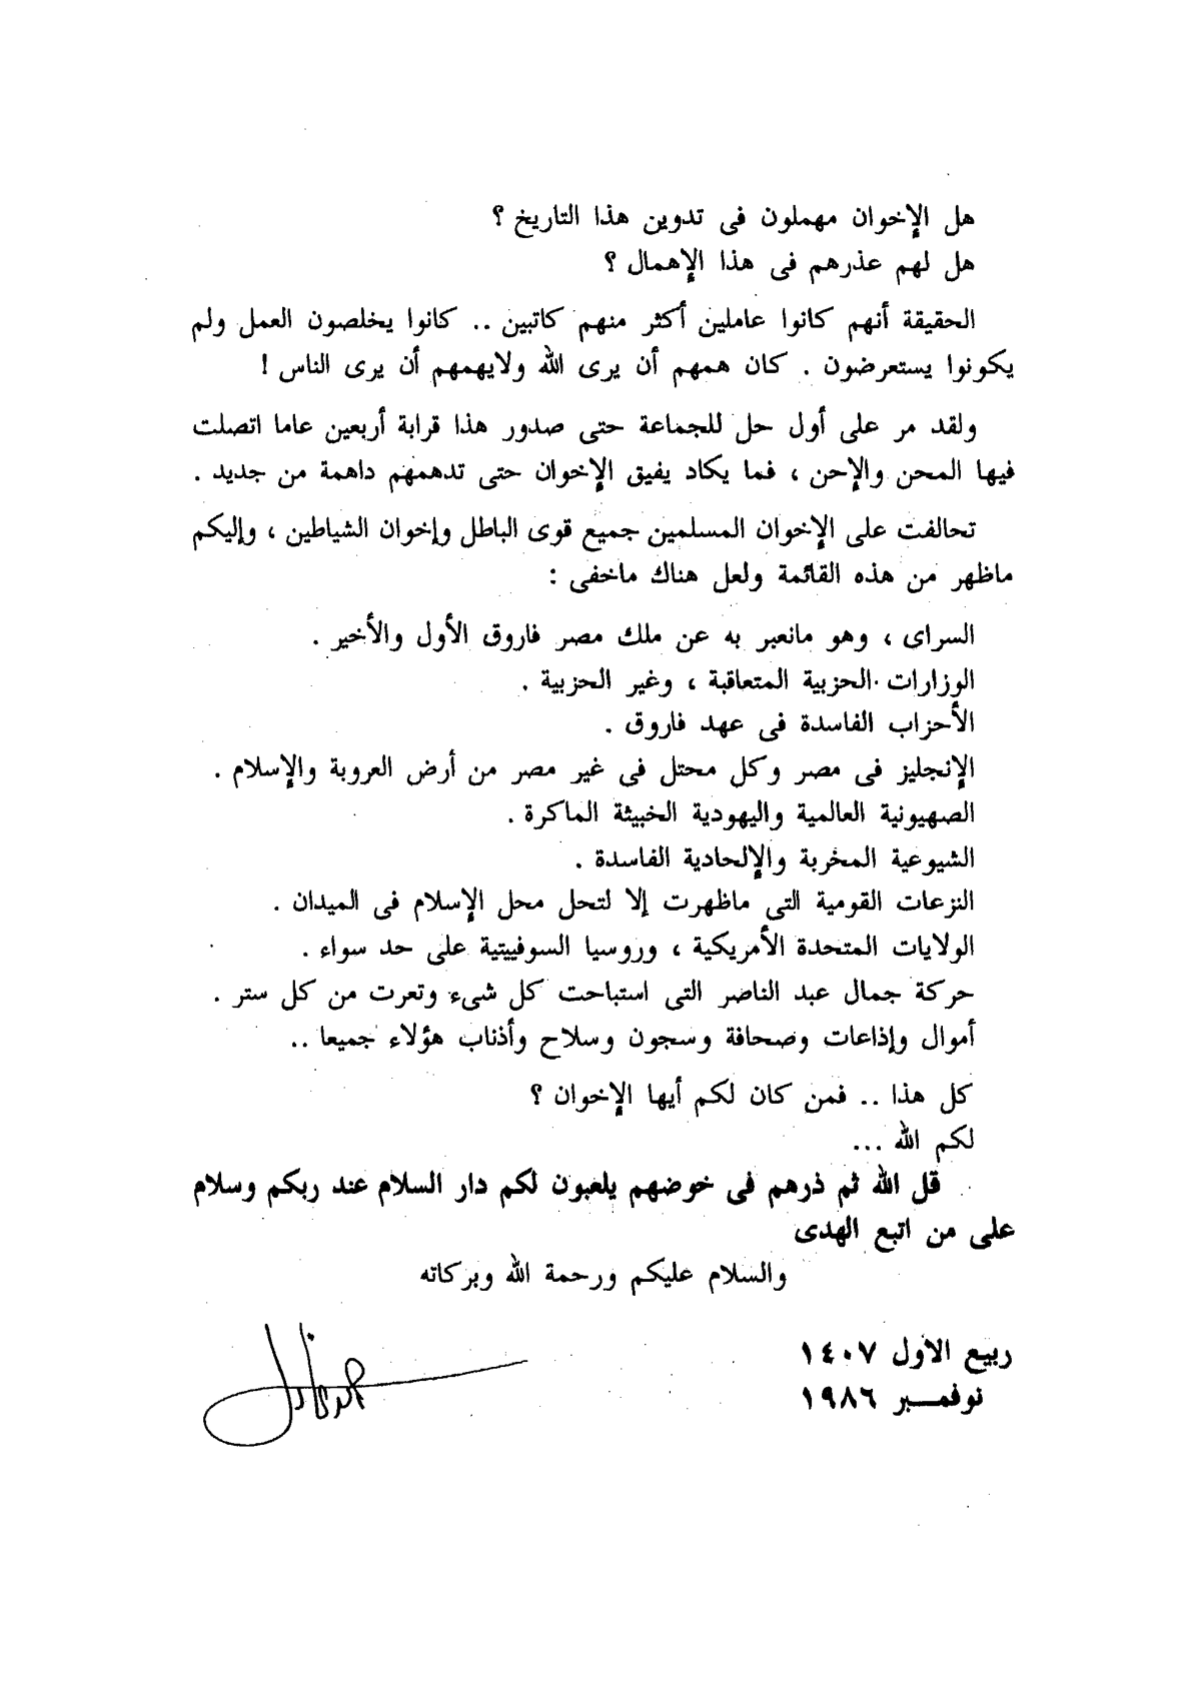 هل الإخوان مهملون فى تدوين هذا التاريخ ؟
هل لهم عذرهم فى هذا الإهمال ؟
الحقيقة أنهم كانوا عاملين أكثر منهم كاتبين .. كانوا يخلصون العمل ولم
يكونوا يستعرضون . كان همهم أن يرى الله ولايهمهم أن يرى الناس !
ولقد مر على أول حل للجماعة حتى صدور هذا قرابة أربعين عاما اتصلت
فيها المحن والإحن ، فما يكاد يفيق الإخوان حتى تدهمهم داهمة من جديد .
تحالفت على الإخوان المسلمين جميع قوى الباطل وإخوان الشياطين ، وإليكم
ماظهر من هذه القائمة ولعل هناك ماخفى :
السراى ، وهو مانعبر به عن ملك مصر فاروق الأول والأخير .
الوزارات الحزبية المتعاقبة ، وغير الحزبية .
الأحزاب الفاسدة فى عهد فاروق .
الإنجليز فى مصر وكل محتل فى غير مصر من أرض العروبة والإسلام .
الصهيونية العالمية واليهودية الخبيثة الماكرة .
الشيوعية المخربة والإلحادية الفاسدة .
النزعات القومية التى ماظهرت إلا لتحل محل الإسلام فى الميدان .
الولايات المتحدة الأمريكية ، وروسيا السوفييتية على حد سواء .
حركة جمال عبد الناصر التى استباحت كل شىء وتعرت من كل ستر .
أموال وإذاعات وصحافة وسجون وسلاح وأذناب هؤلاء جميعا ..
كل هذا .. فمن كان لكم أيها الإخوان ؟
لكم الله ...
قل الله ثم ذرهم فى خوضهم يلعبون لكم دار السلام عند ربكم وسلام
على من اتبع الهدى
والسلام عليكم ورحمة الله وبركاته
ربيع الاول ١٤٠٧
نوفمـــبر ١٩٨٦